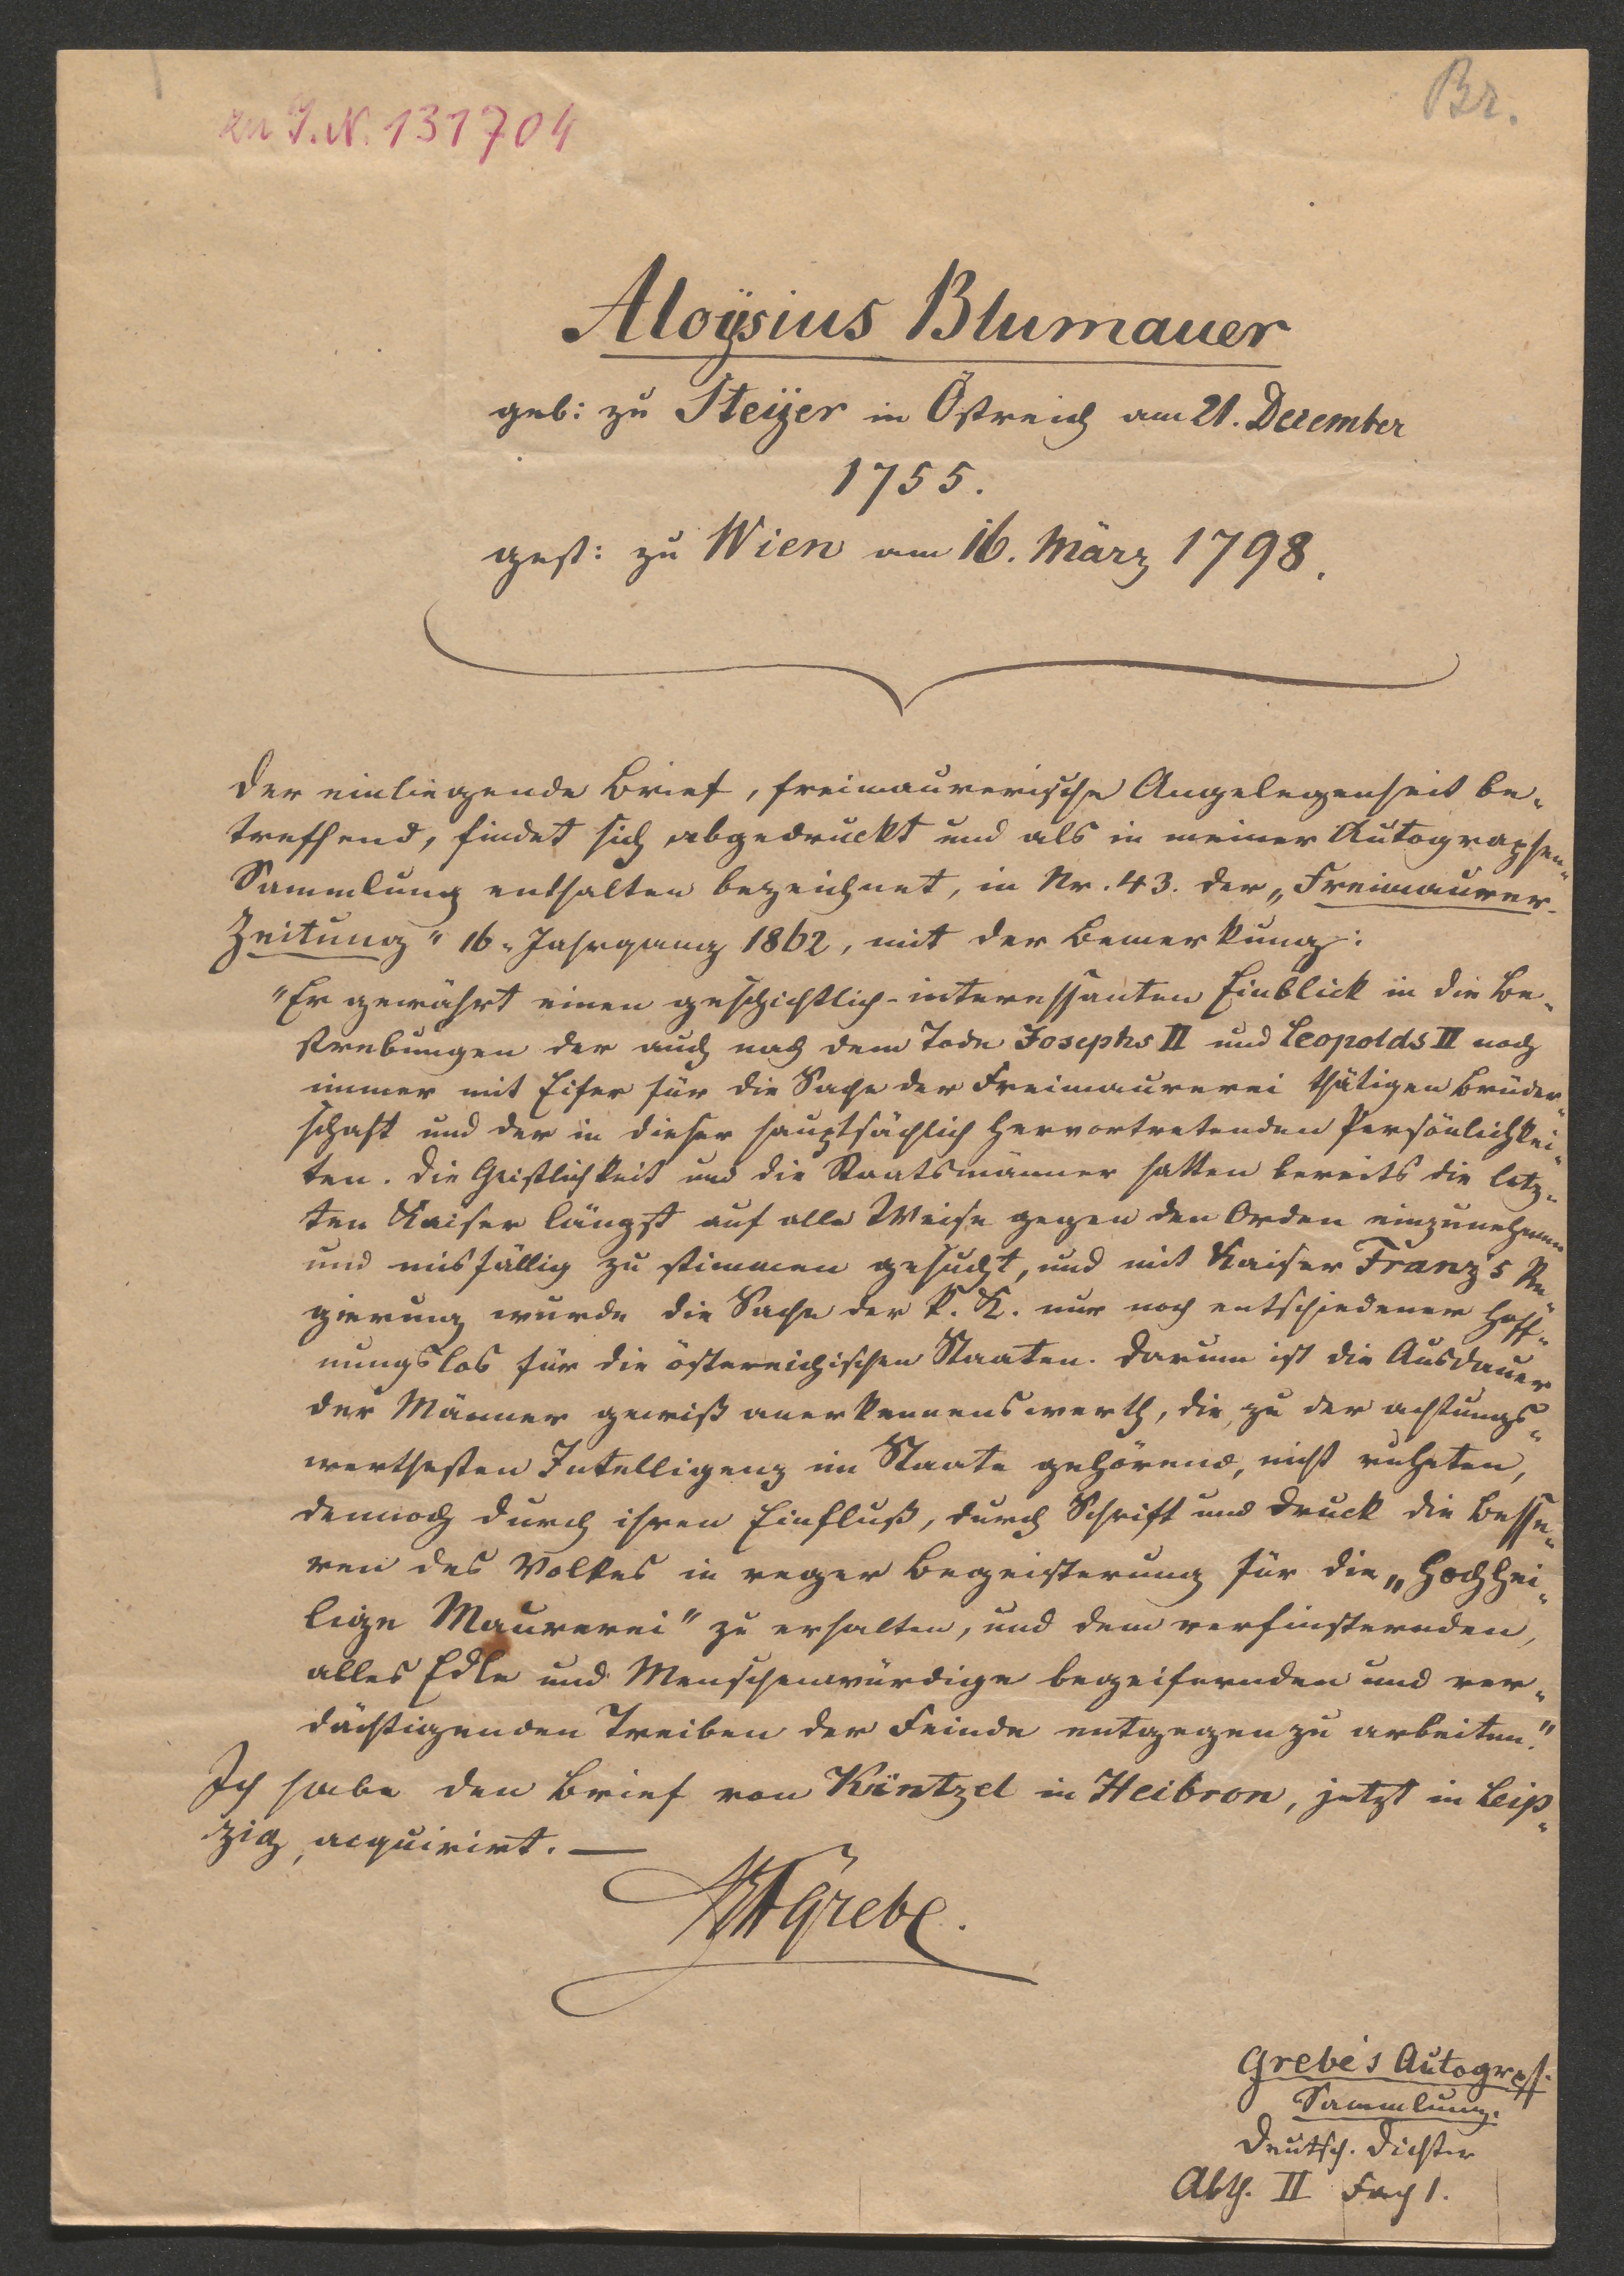 zu I.N. 131704
Br.
Aloÿsius Blumauer
geb: zu Steÿer in Östreich am 21. December
1755.
gest: zu Wien am 16. März 1798.
Der einliegende Brief, freimaurerische Angelegenheit be-
treffend, findet sich abgedruckt und als in meiner Autographen-
Sammlung enthalten bezeichnet, in Nr. 43. der „Freimaurer-
Zeitung" 16. Jahrgang 1862, mit der Bemerkung:
"Er gewährt einen geschichtlich-interessanten Einblick in die Be-
strebungen der auch nach dem Tode Josephs II und Leopolds II noch
immer mit Eifer für die Sache der Freimaurerei thätigen Brüder-
schaft und der in dieser hauptsächlich hervortretenden Persönlichkei-
ten. Die Geistlichkeit und die Staatsmänner hatten bereits die letz-
ten Kaiser längst auf alle Weise gegen den Orden einzunehmen
und misfällig zu stimmen gesucht, und mit Kaiser Franz's Re-
gierung wurde die Sache der k. K. nur noch entschiedener hoff-
nungslos für die östereichischen Staaten. Darum ist die Ausdauer
der Männer gewiß anerkennenswerth, die, zu der achtungs-
werthesten Intelligenz im Staate gehörend, nicht ruheten,
dennoch durch ihren Einfluß, durch Schrift und Druck die Besse-
ren des Volkes in reger Begeisterung für die „Hochhei-
lige Maurerei" zu erhalten, und dem verfinsternden,
alles Edle und Menschenwürdige begeifernden und ver-
dächtigenden Treiben der Feinde entgegen zu arbeiten."
Ich habe den Brief von Küntzel in Heibron, jetzt in Leip-
zig, acquirirt. —
Grebe.
Grebe's Autogrph.
Sammlung.
Deutsch. Dichter
Abth. II Fach 1.